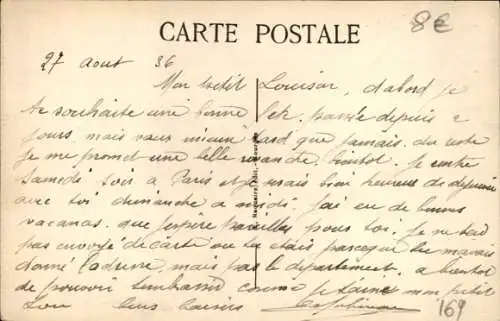 CARTE POSTALE
8€
27 Aout 36
Mon petit Louison, d'abord je
te souhaite une bonne fete, passée depuis 2
jours, mais vaux mieux tard que jamais. du reste
je me promet une belle revanche, bientot. Je rentre
Samedi soir à Paris et je serais bien heureux de dejeuner
avec toi dimanche a midi. j'ai eu de bonnes
vacances. que j'espère pareilles pour toi. Je ne t'ai
pas envoyé de carte ou tu etais parceque tu m'avais
donné l'adresse, mais pas le departement. a bientot
de pouvoir t'embrasser comme je t'aime mon petit
Lou bons baisers
169